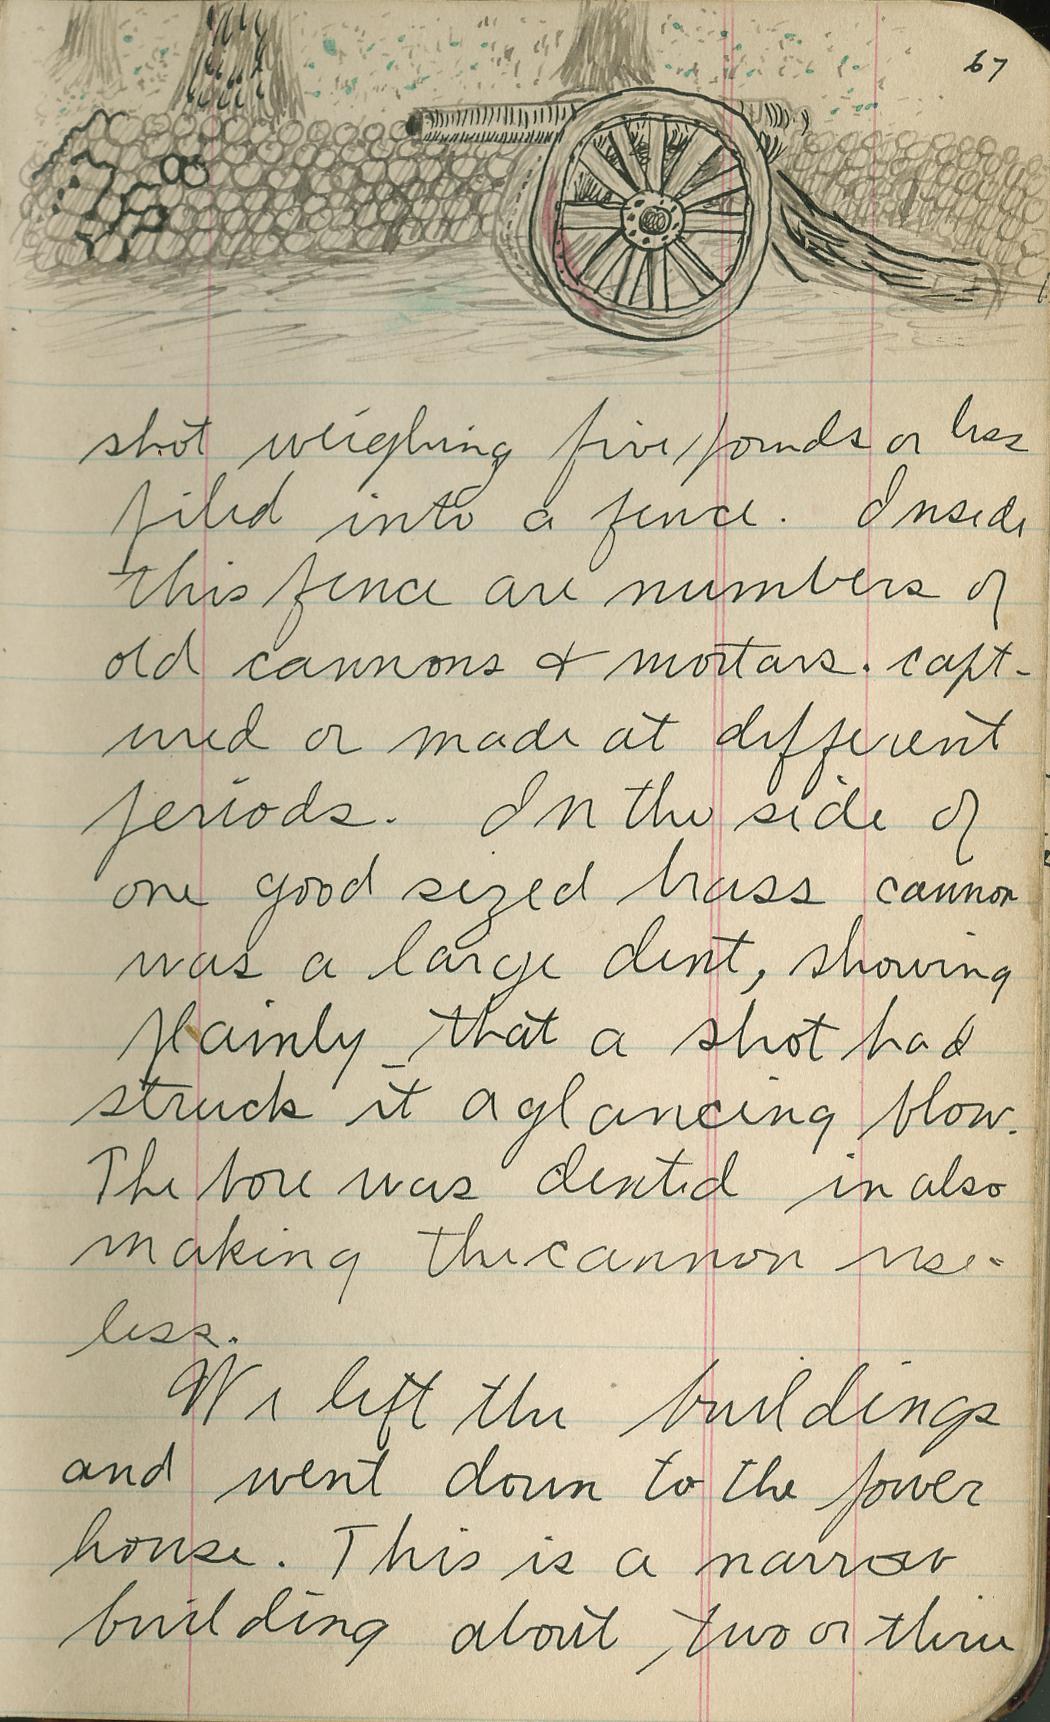 67
shot weighing five pounds or less
piled into a fence. Inside
this fence are numbers of
old cannons & mortars. capt-
ured or made at different
periods. In the side of
one good sized brass cannon
was a large dent, showing
plainly that a shot had
struck it a glancing blow.
The bore was dented in also
making the cannon use-
less.
We left the buildings
and went down to the power
house. This is a narrow
building about two or three